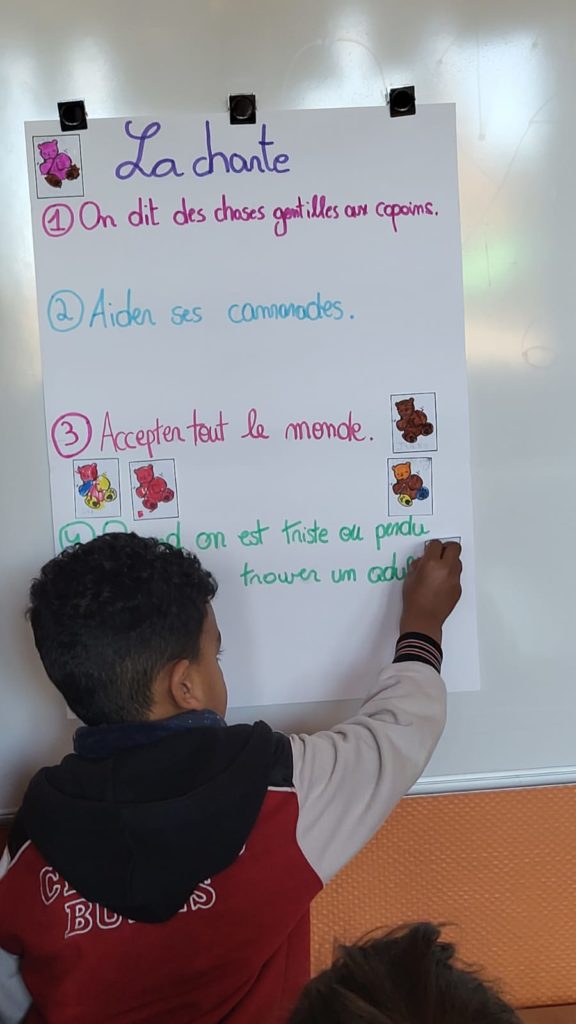 La charte
① On dit des choses gentilles aux copains.
② Aider ses camarades.
③ Accepter tout le monde.
on est triste ou perdu
trouver un